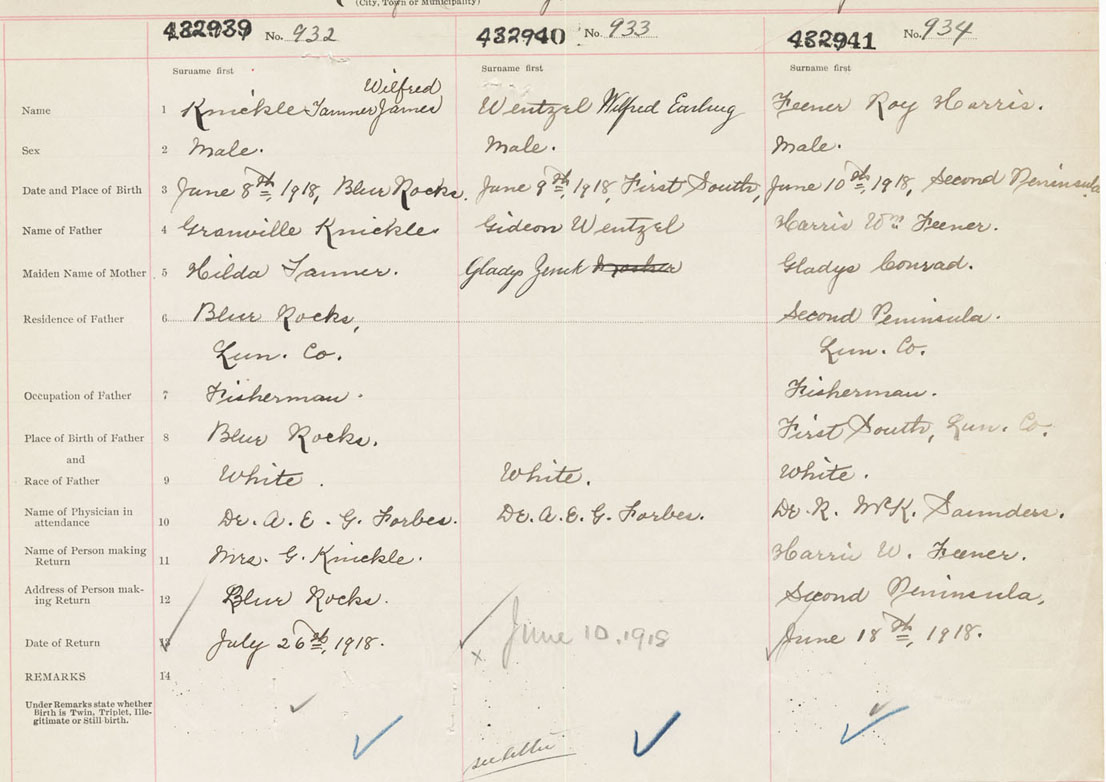 (City, Town or Municipality)
432939 No. 932 432940 No. 933 432941 No. 934
Surname first Surname first Surname first
Wilfred
Name 1 Knickle Tanner James Wentzel Wilfred Feener Roy Harris.
Sex 2 Male. Male. Male.
Date and Place of Birth 3 June 8th, 1918, Blue Rocks. June 9th, 1918, First South, June 10th, 1918, Second Peninsula
Name of Father 4 Granville Knickle Gideon Wentzel Harris Wm Feener.
Maiden Name of Mother 5 Hilda Tanner. Gladys Zinck Gladys Conrad.
Residence of Father 6 Blue Rocks, Second Peninsula.
Lun. Co. Lun. Co.
Occupation of Father 7 Fisherman. Fisherman.
Place of Birth of Father 8 Blue Rocks. First South, Lun. Co.
and
Race of Father 9 White. White. White.
Name of Physician in
attendance 10 Dr. A. E. G. Forbes. Dr. A. E. G. Forbes. Dr. R. McK. Saunders.
Name of Person making
Return 11 Mrs. G. Knickle. Harris W. Feener.
Address of Person mak-
ing Return 12 Blue Rocks. Second Peninsula,
Date of Return 13 July 26th, 1918. x June 10, 1918 June 18th, 1918.
REMARKS 14
Under Remarks state whether
Birth is Twin, Triplet, Ille-
gitimate or Still birth.
see letter